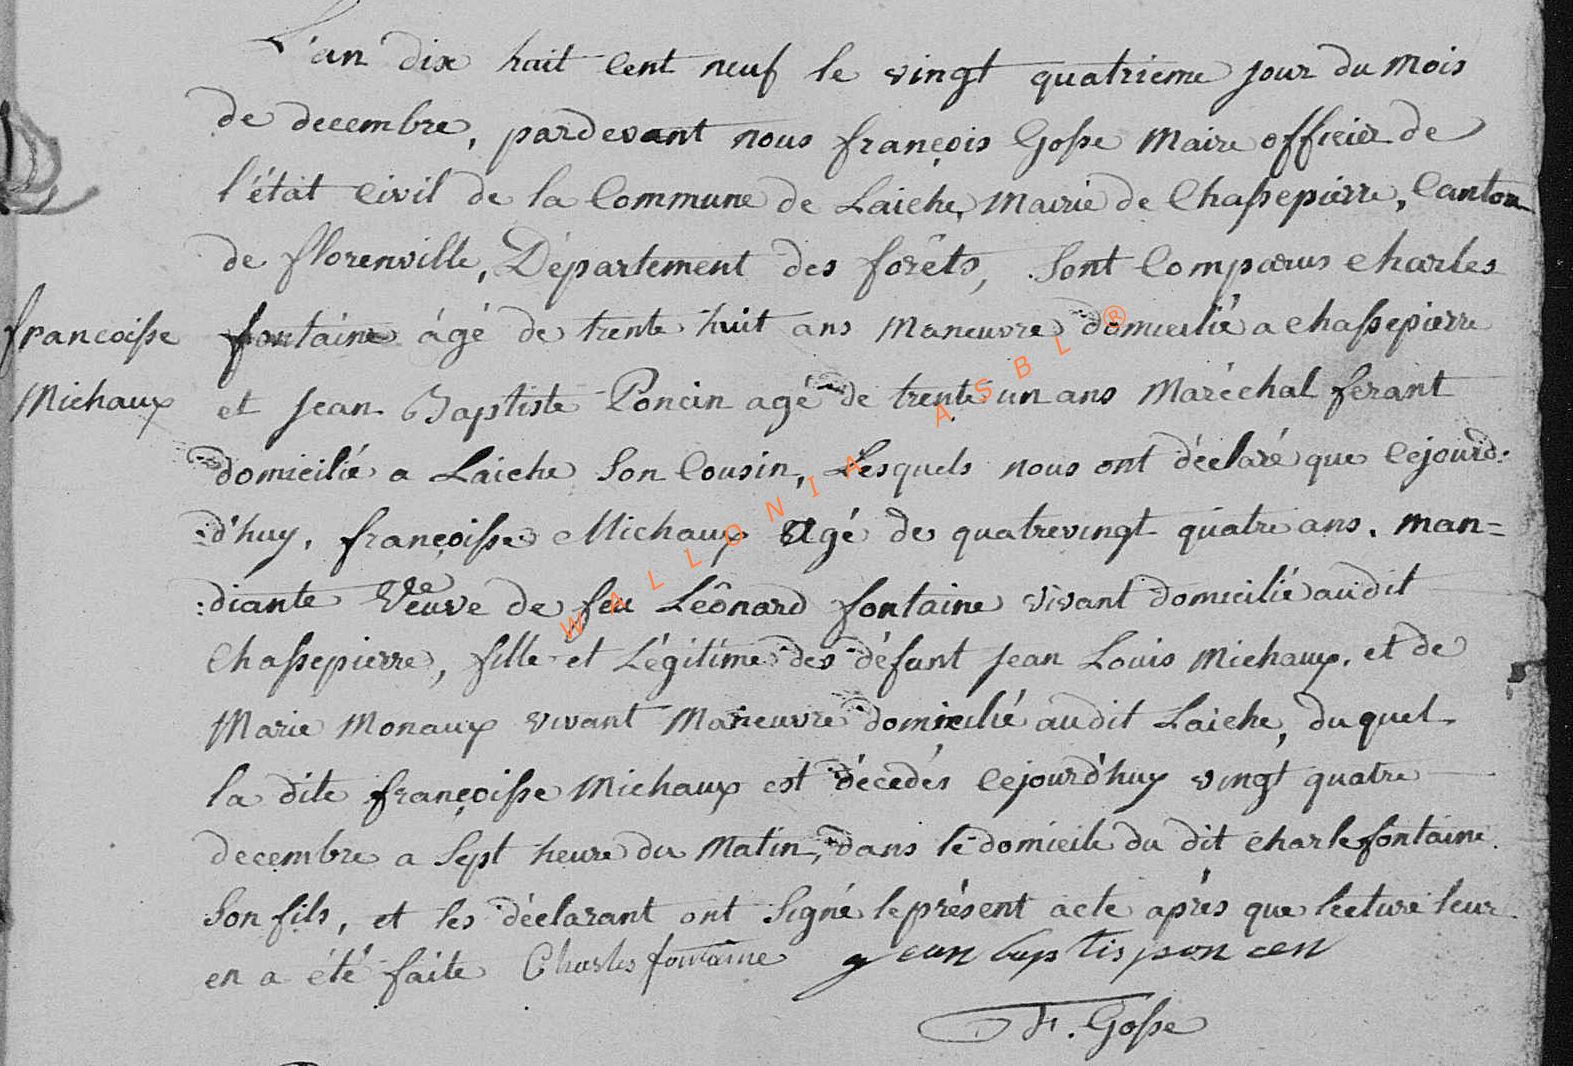 L'an dix huit cent neuf le vingt quatrieme jour du mois
de decembre, pardevant nous françois Gosse Maire officier de
l'état Civil de la Commune de Laiche, Mairie de Chassepierre, Canton
de florenville, Département des forêts, Sont Comparus charles
francoisse
Michaux
fontaine âgé de trente huit ans Maneuvre domicilié a chassepierre
et Jean Baptiste Poncin agé de trente un ans Maréchal ferant
domicilié a Laiche Son Cousin, Lesquels nous ont déclaré que Cejourd:
:d'huy, françoisse Michaux Agé de quatrevingt quatre ans, man=
:diante Veuve de feu Léônard fontaine vivant domicilié audit
Chassepierre, fille et Légitime des défunt Jean Louis Michaux, et de
Marie Monaux vivant Maneuvre domicilié audit Laiche, du quel
la dite françoisse Michaux est décedés Cejourd'huy vingt quatre
decembre a Sept heure du Matin, dans le domicile du dit charle fontaine
Son fils, et les déclarant ont Signé le présent acte aprés que lecture leur
en a été faite Charles fontaine jean baptis poncen
F. Gosse
WALLONIA ASBL ®